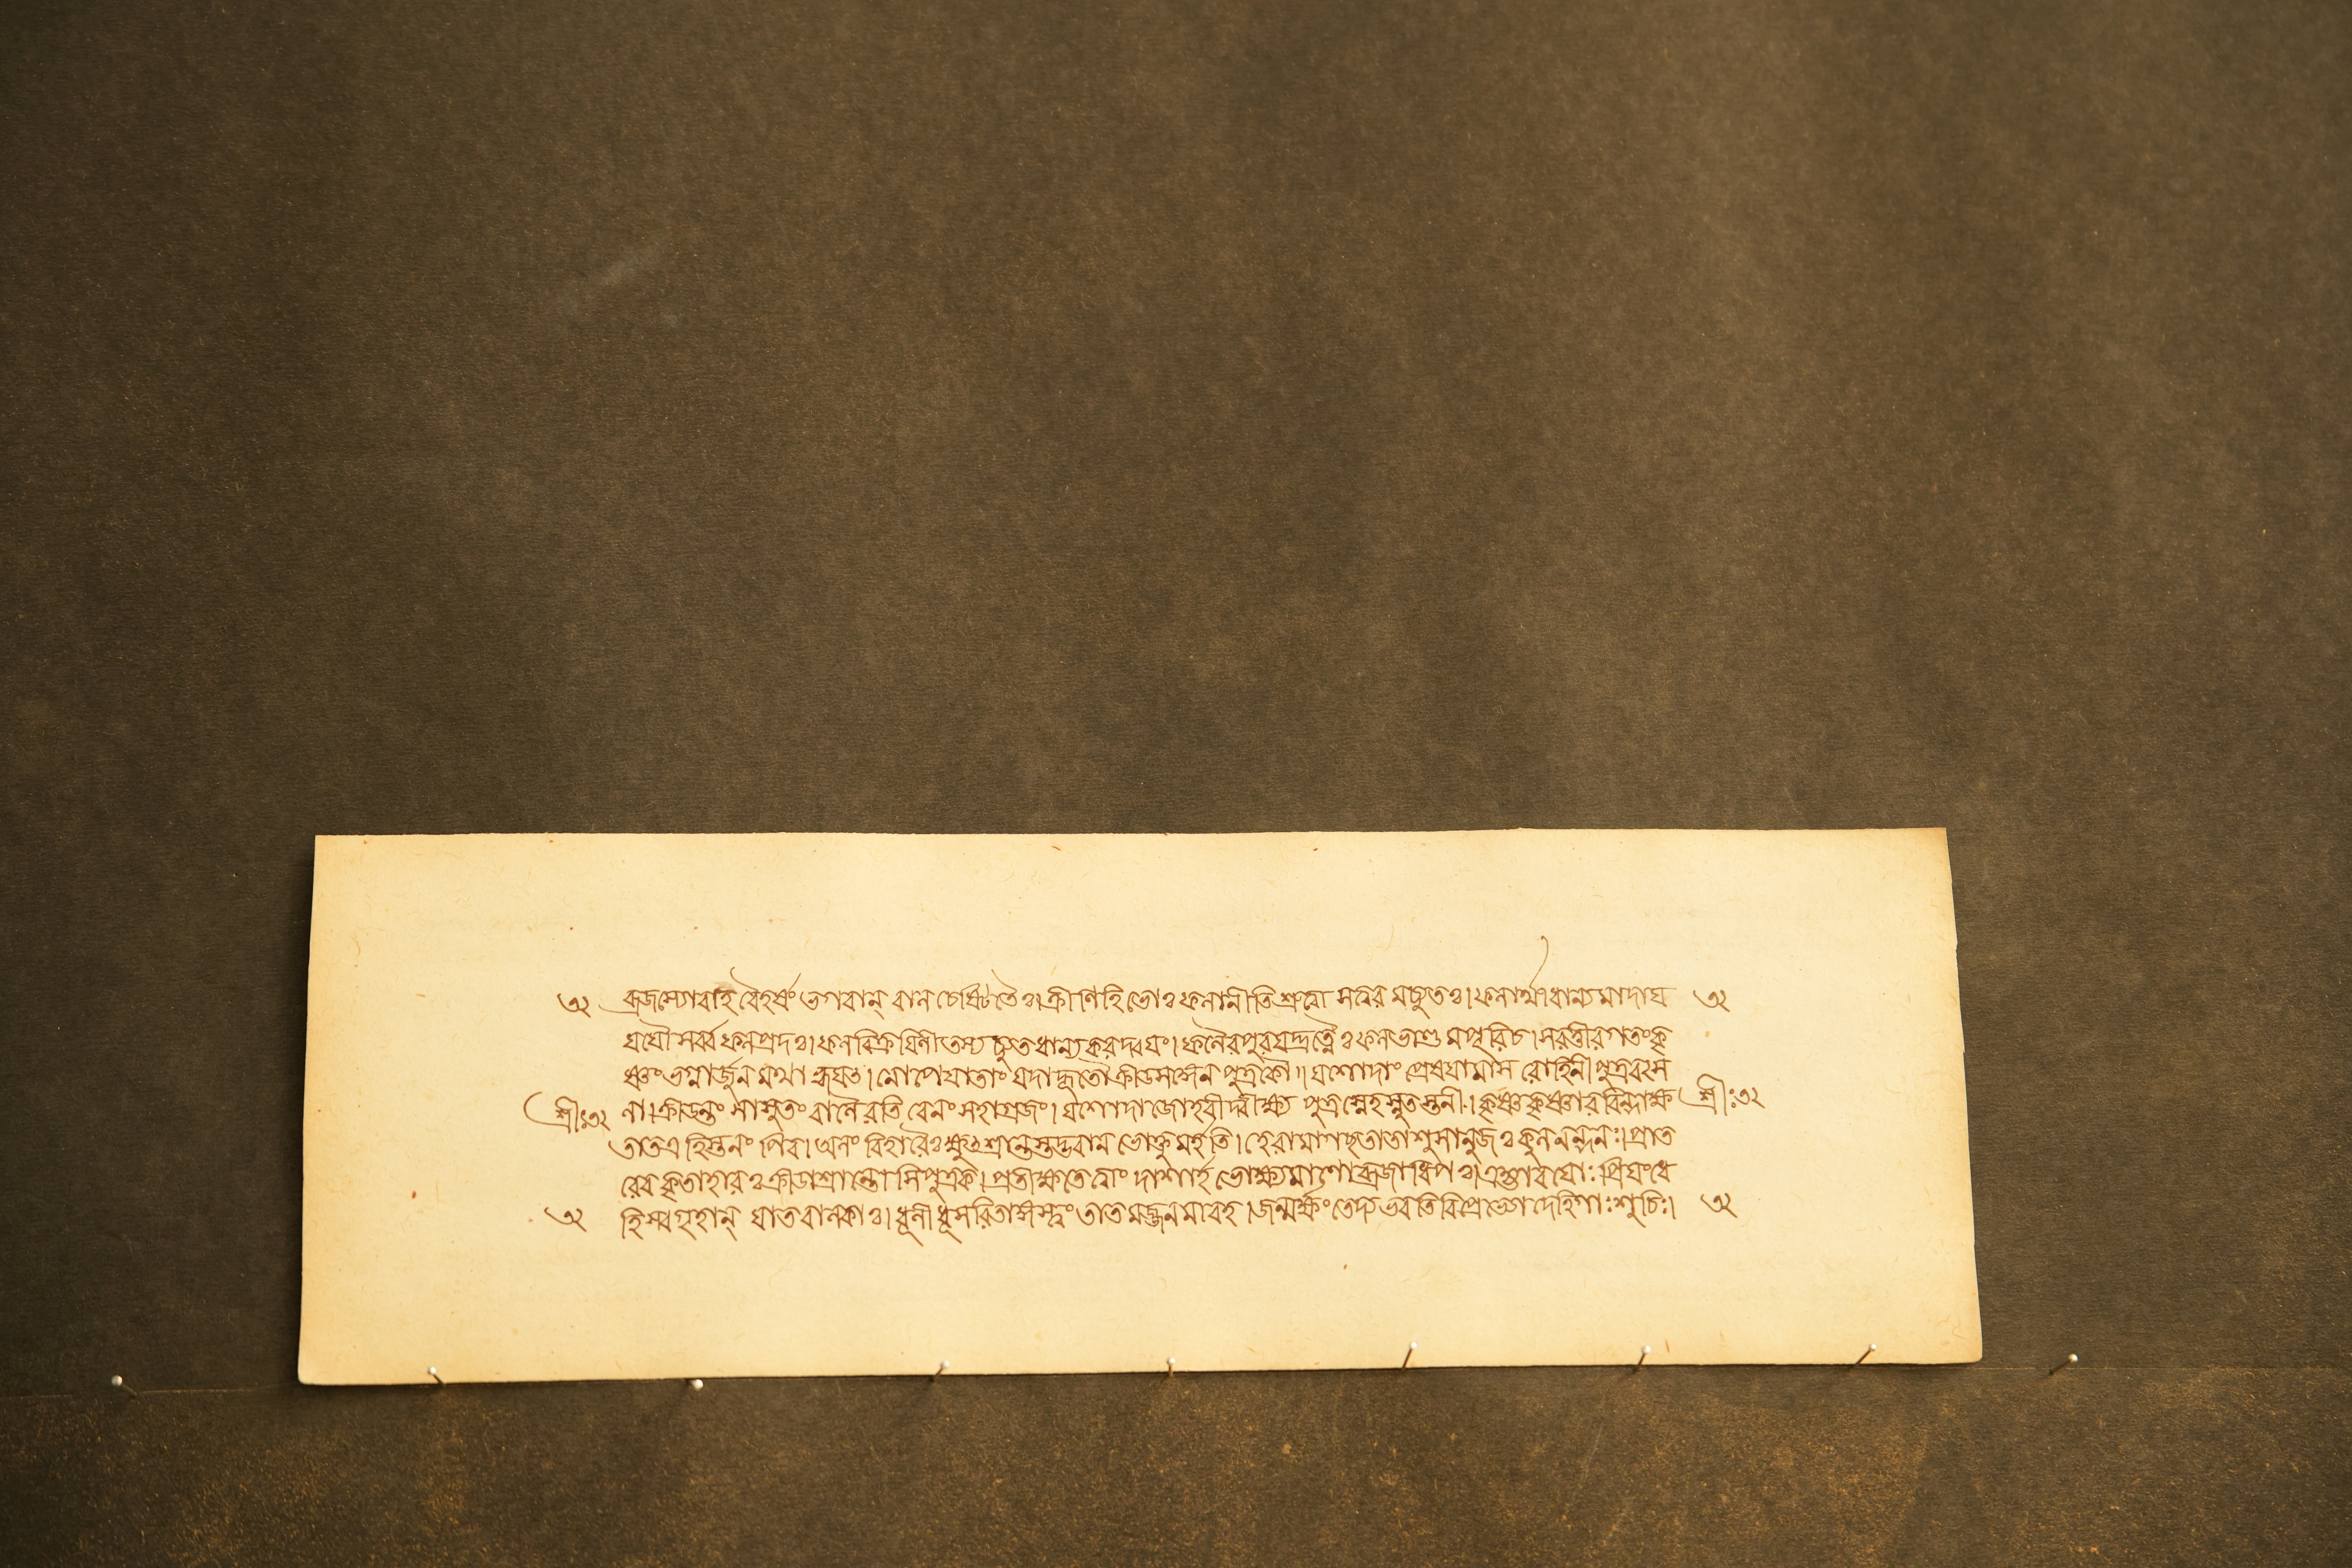 ৩২ ব্রজস্যোবাহ বৈহর্ষং ভগবান্ বাল চেষ্টিতৈঃ। ক্রীণিহি ভোঃ ফলানীতি শ্রুত্বা সত্বর মচ্যুতঃ। ফলার্থী ধান্য মাদায় ৩২
যযৌ সর্ব্ব ফলপ্রদঃ। ফলবিক্রয়িনী তস্য চ্যুত ধান্য করদ্বয়ং। ফলৈরপুরয়দ্রত্নৈঃ ফলভাণ্ড মপূরিচ। সরত্তীরগতং কৃ
ষ্ণং ভগ্নার্জুন মথা হ্বয়ৎ। নোপেয়াতাং যদাহূতৌ ক্রীডসঙ্গেন পুত্রকৌ॥ যশোদাং প্রেষয়ামাস রোহিনী পুত্রবৎস
শ্রীঃ৩২ লা। ক্রীডন্তং সা সুতং বালৈরতি বেলং সহাগ্রজং। যশোদা জোহবীদ্বীক্ষ্য পুত্রস্নেহস্নুতস্তনী। কৃষ্ণকৃষ্ণারবিন্দাক্ষ শ্রীঃ৩২
তাত এহি স্তনং পিব। অলং বিহারৈঃ ক্ষুৎশ্রান্তস্তদ্ভবান ভোক্তুমর্হতি। হেরামাগছ তাতাশু সানুজঃ কুলনন্দনঃ। প্রাত
রেব কৃতাহারঃ ক্রীডাশ্রান্তো সিপুত্রক। প্রতীক্ষতে ত্বাং দাশার্হ ভোক্ষ্যমাণো ব্রজাধিপঃ। এহ্যাবয়োঃ প্রিয়ং ধে
৩২ হি স্বগৃহান্ যাত বালকাঃ। ধূলী ধূসরিতাঙ্গস্ত্বং তাত মজ্জনমাবহ। জন্মর্ক্ষং তেদ্য ভবতি বিপ্রেভ্যো দেহি গাঃ শুচিঃ। ৩২